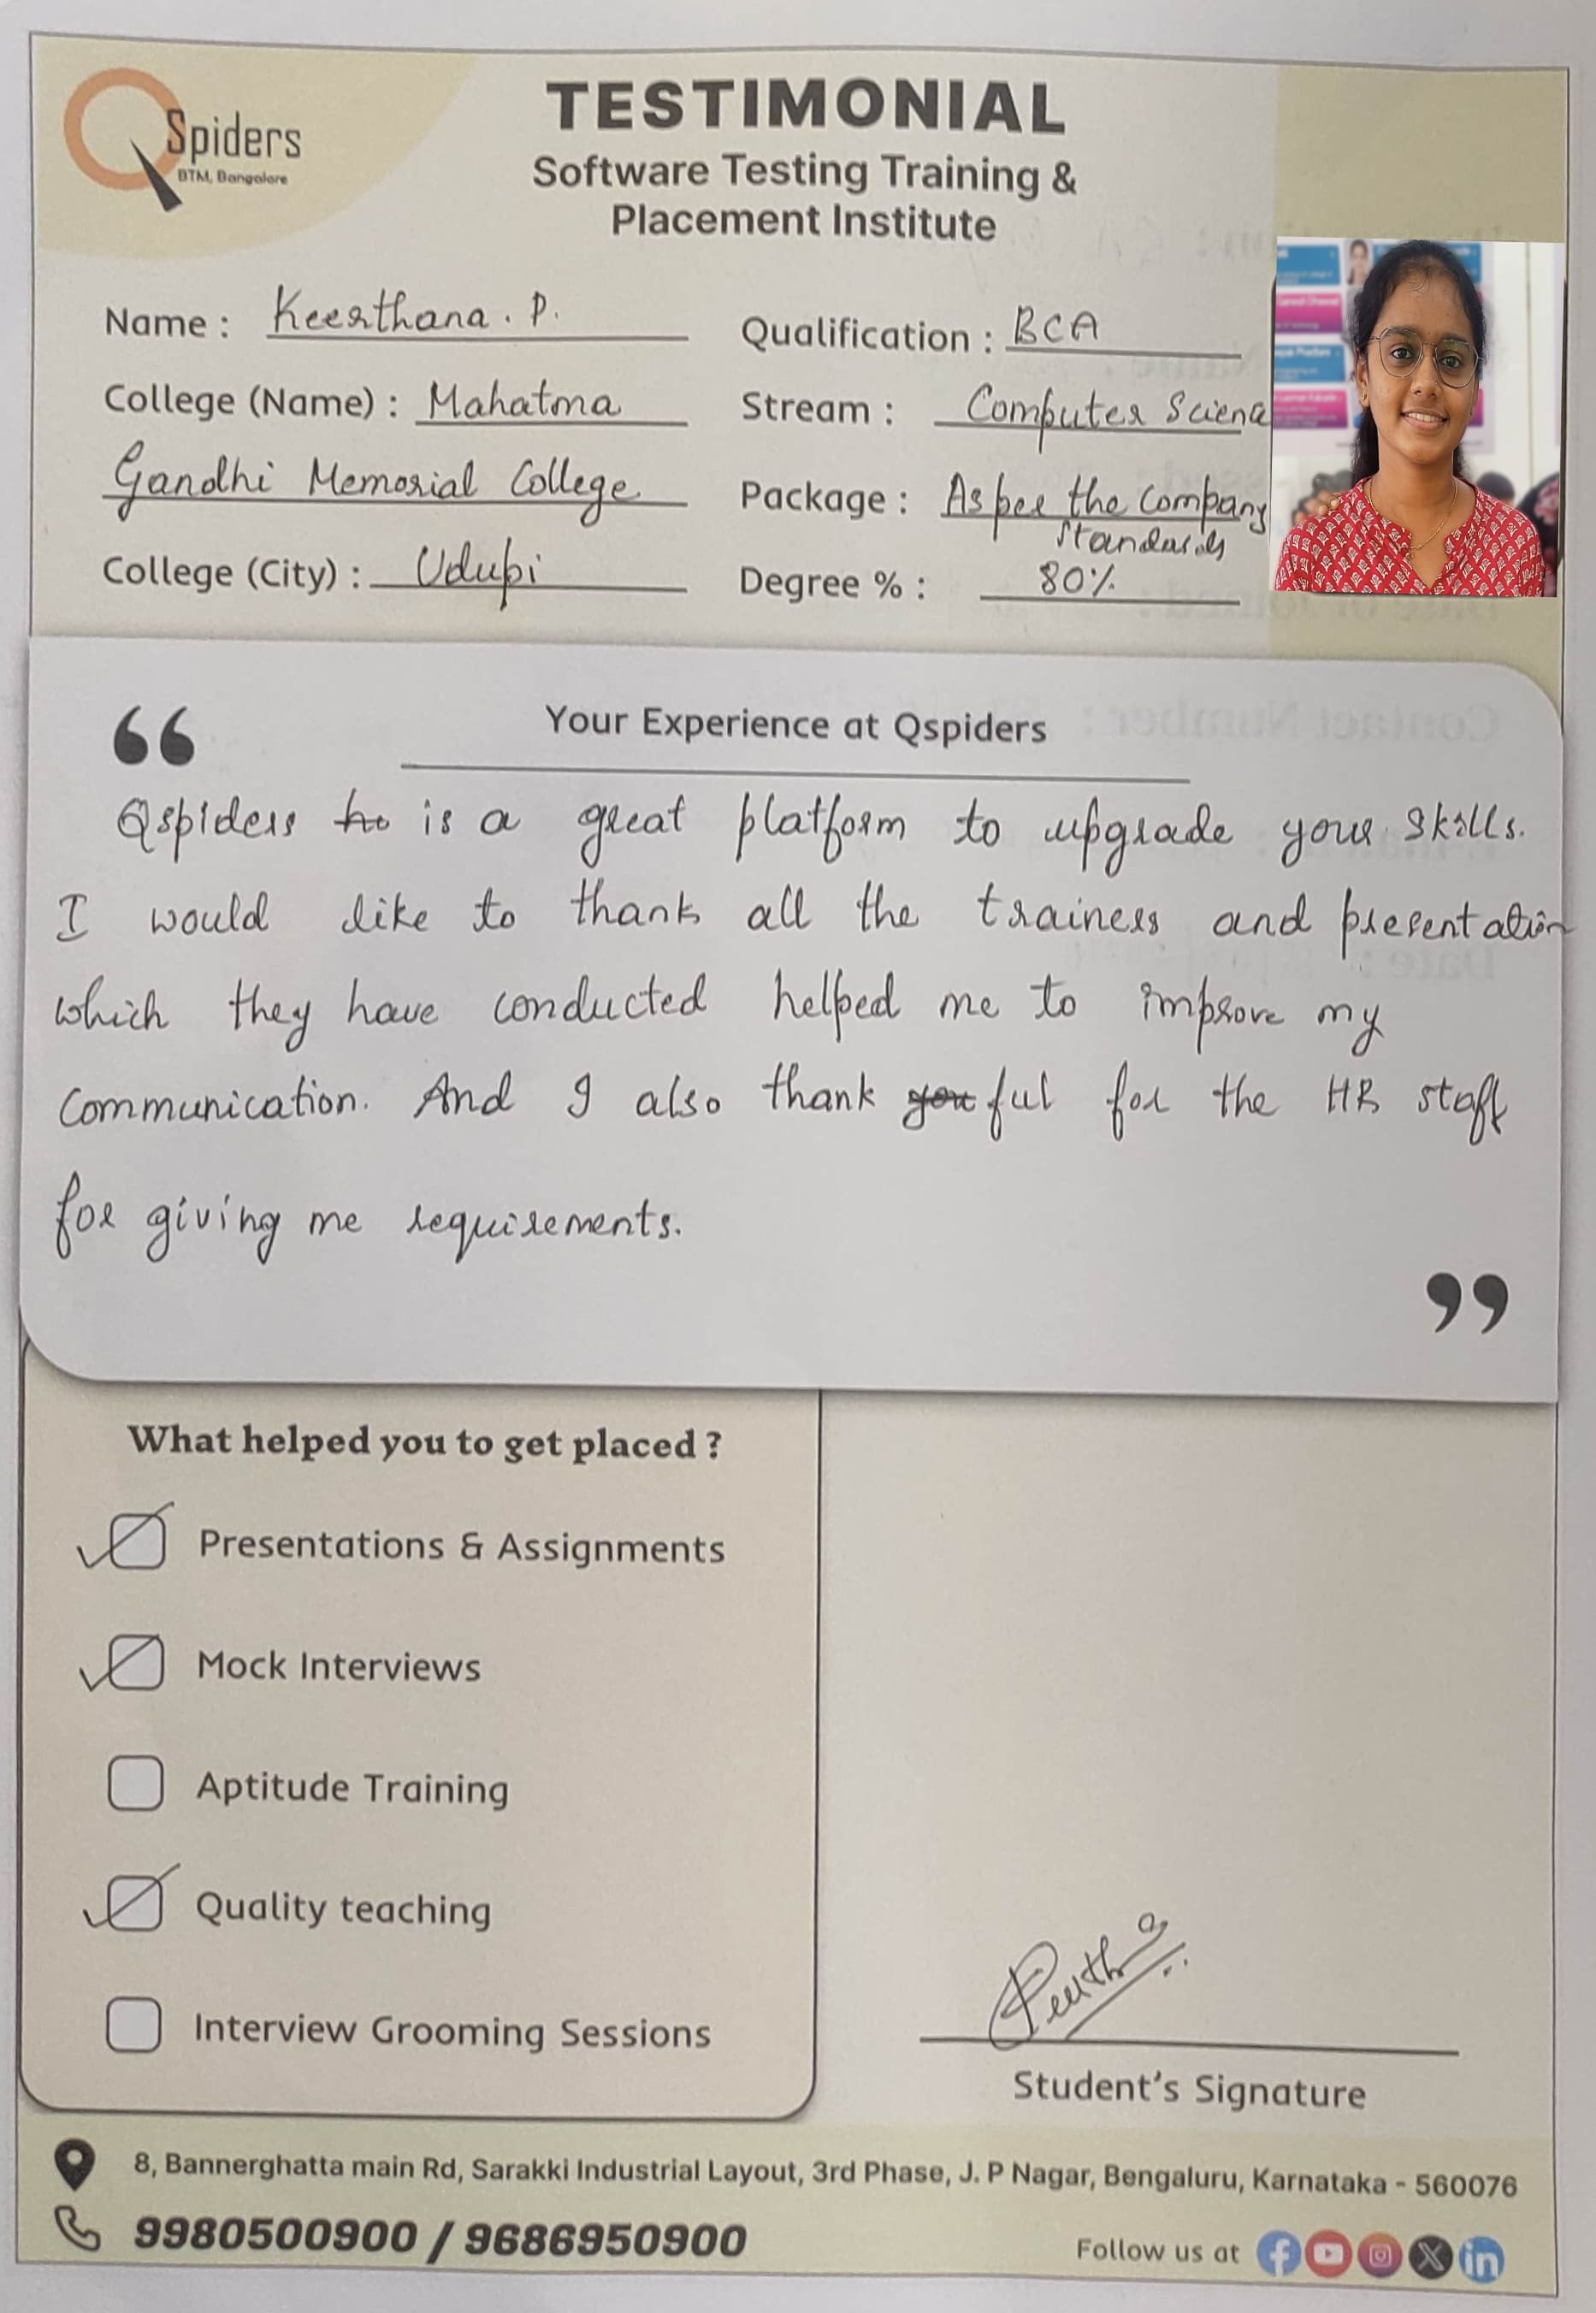 QSpiders
BTM, Bangalore
TESTIMONIAL
Software Testing Training &
Placement Institute
Name : Keerthana . P.
Qualification : BCA
College (Name) : Mahatma
Stream : Computer Scienc
Gandhi Memorial College
Package : As per the Company
Standards
College (City) : Udupi
Degree % : 80%
Your Experience at Qspiders
Qspiders is a great platform to upgrade your skills.
I would like to thank all the trainers and presentation
which they have conducted helped me to improve my
communication. And I also thank you ful for the HR staff
for giving me requirements.
What helped you to get placed ?
Presentations & Assignments
Mock Interviews
Aptitude Training
Quality teaching
Interview Grooming Sessions
Student's Signature
8, Bannerghatta main Rd, Sarakki Industrial Layout, 3rd Phase, J. P Nagar, Bengaluru, Karnataka - 560076
9980500900 / 9686950900
Follow us at